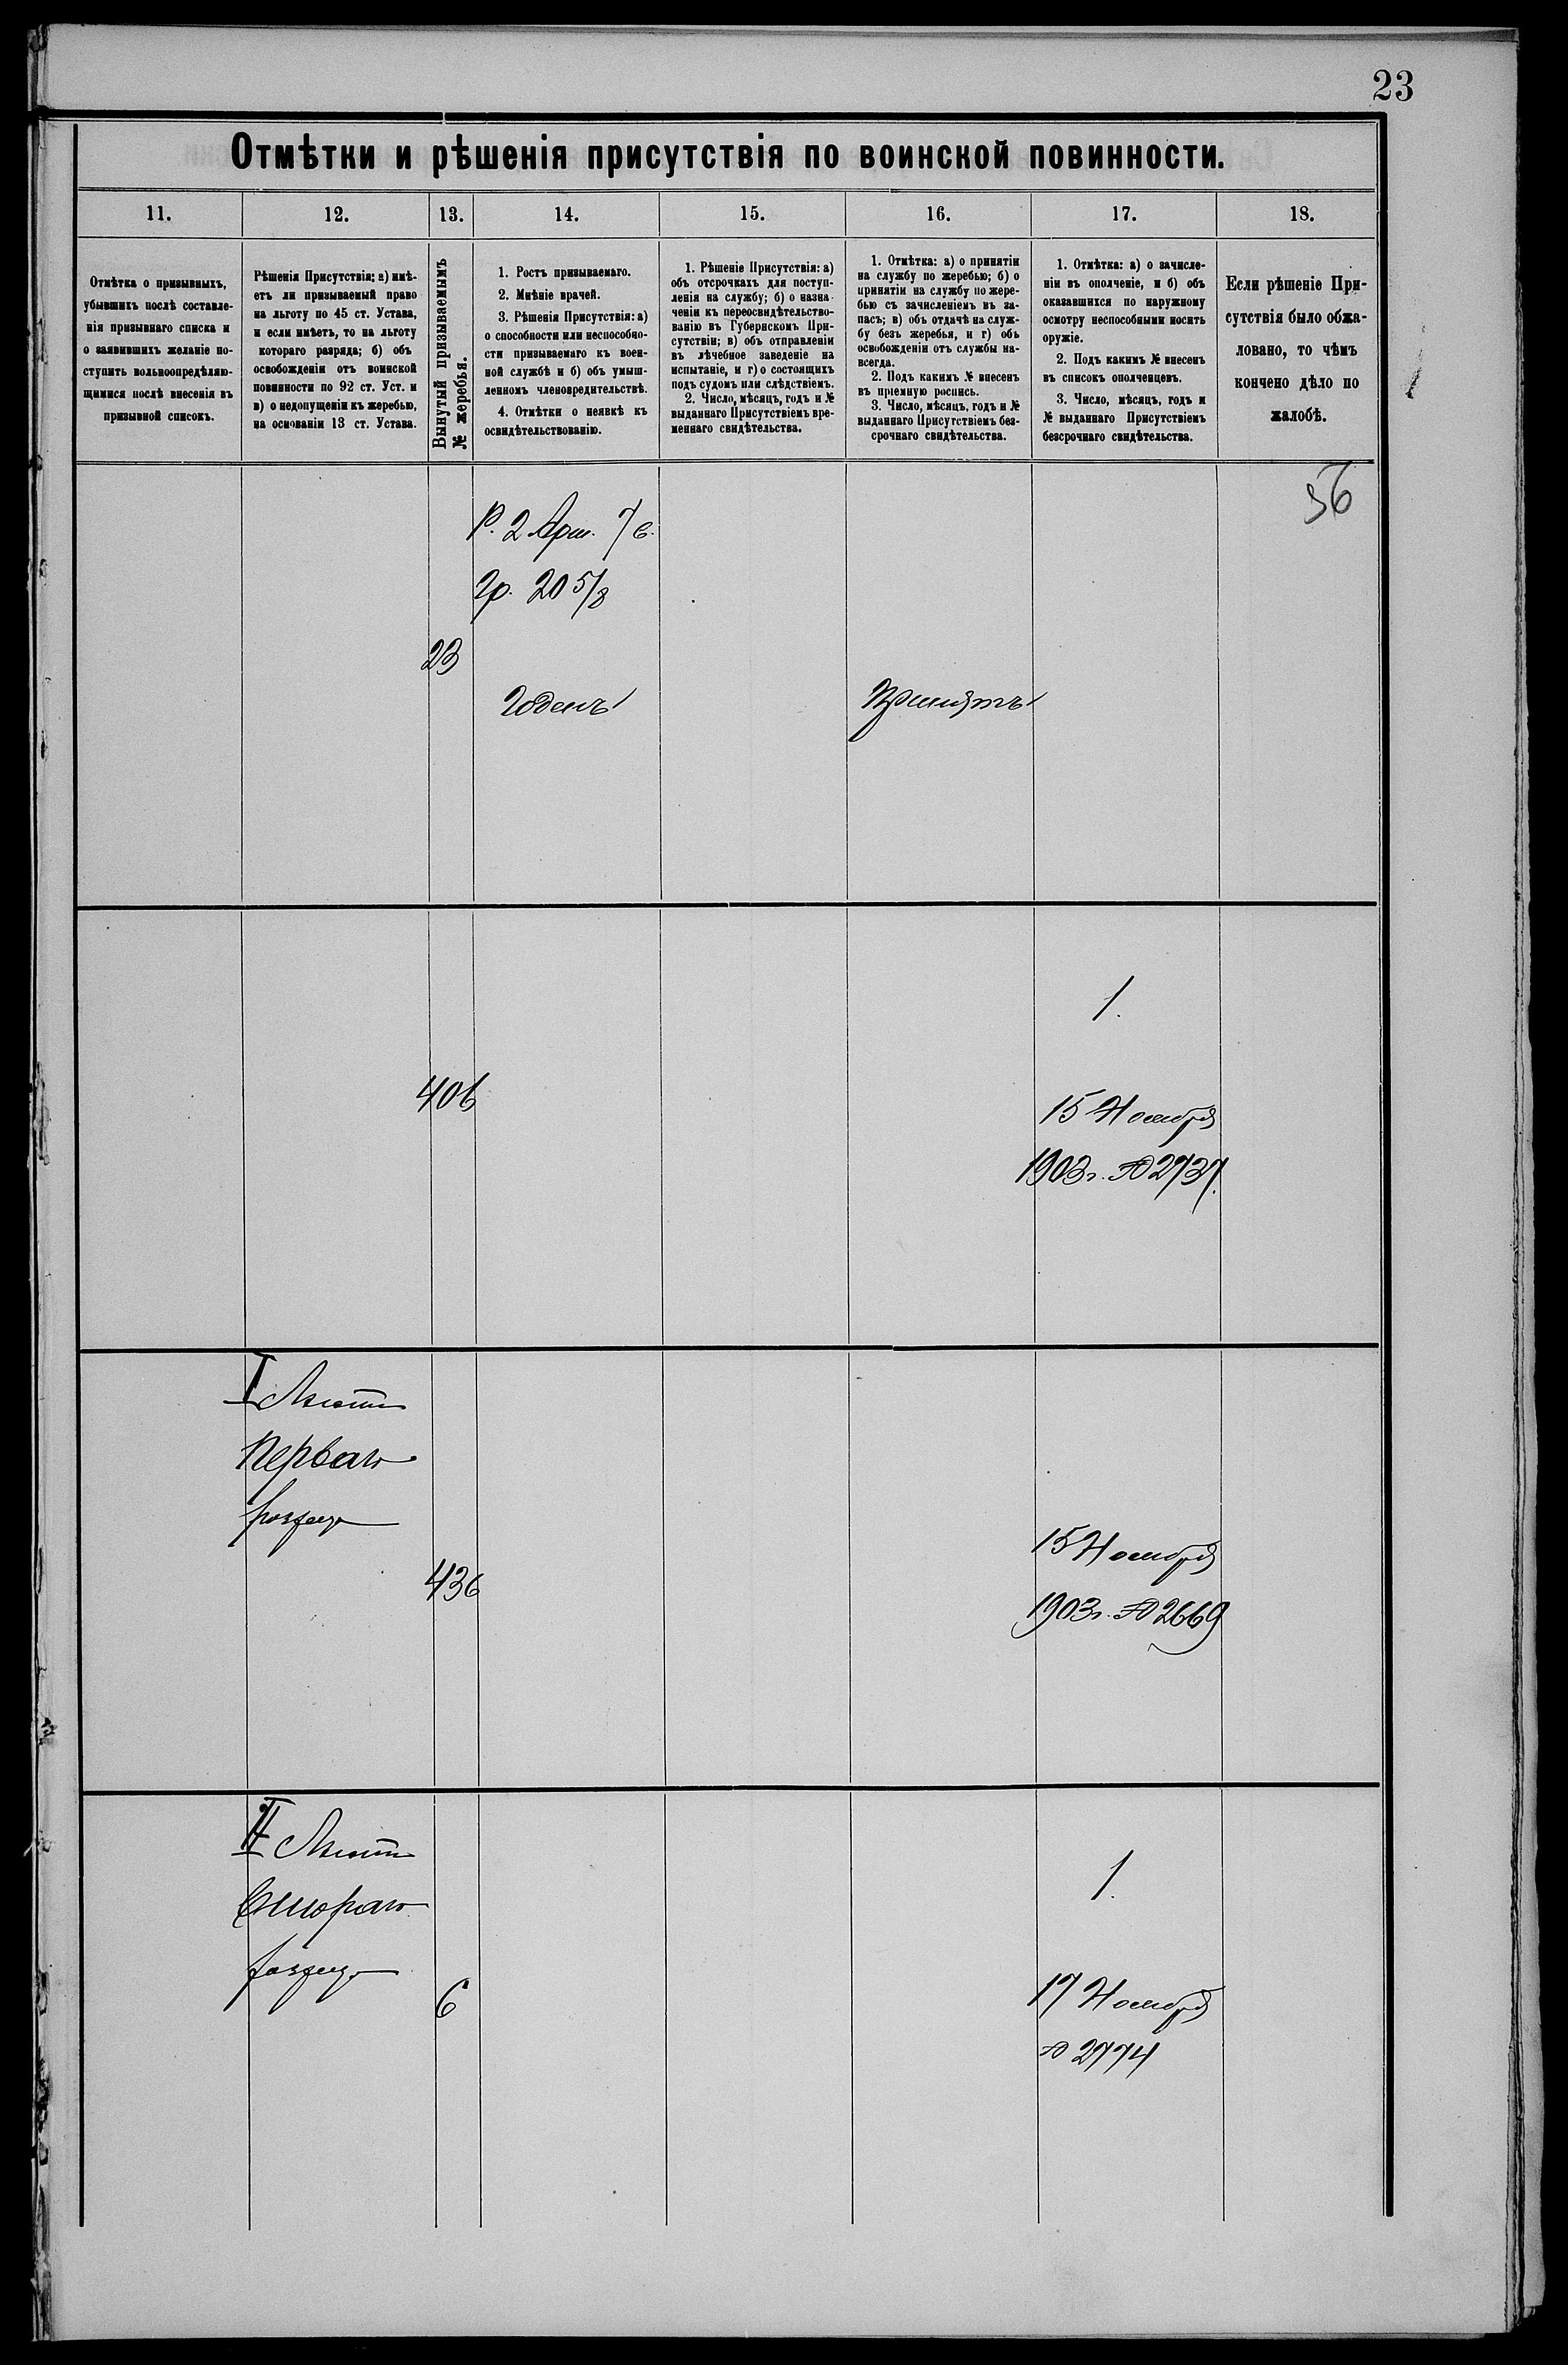 23
Отмѣтки и рѣшенія присутствія по воинской повинности.
11. 12. 13. 14. 15. 16. 17. 18.
Отмѣтка о призывныхъ,
убывшихъ послѣ составле-
нія призывнаго списка и
о заявившихъ желаніе по-
ступить вольноопредѣляю-
щимися послѣ внесенія въ
призывной списокъ.
Рѣшенія Присутствія: а) имѣ-
етъ ли призываемый право
на льготу по 45 ст. Устава,
и если имѣетъ, то на льготу
котораго разряда; б) объ
освобожденіи отъ воинской
повинности по 92 ст. Уст. и
в) о недопущеніи къ жеребью,
на основаніи 13 ст. Устава.
Вынутый призываемымъ
№ жеребья.
1. Ростъ призываемаго.
2. Мнѣніе врачей.
3. Рѣшенія Присутствія: а)
о способности или неспособно-
сти призываемаго къ воен-
ной службѣ и б) объ умыш-
ленномъ членовредительствѣ.
4. Отмѣтки о неявкѣ къ
освидѣтельствованію.
1. Рѣшеніе Присутствія: а)
объ отсрочкахъ для поступ-
ленія на службу; б) о назна-
ченіи къ переосвидѣтельство-
ванію въ Губернскомъ При-
сутствіи; в) объ отправленіи
въ лѣчебное заведеніе на
испытаніе, и г) о состоящихъ
подъ судомъ или слѣдствіемъ.
2. Число, мѣсяцъ, годъ и №
выданнаго Присутствіемъ вре-
меннаго свидѣтельства.
1. Отмѣтка: а) о принятіи
на службу по жеребью; б) о
принятіи на службу по жере-
бью съ зачисленіемъ въ за-
пасъ; в) объ отдачѣ на служ-
бу безъ жеребья, и г) объ
освобожденіи отъ службы на-
всегда.
2. Подъ какимъ № внесенъ
въ пріемную роспись.
3. Число, мѣсяцъ, годъ и №
выданнаго Присутствіемъ без-
срочнаго свидѣтельства.
1. Отмѣтка: а) о зачисле-
ніи въ ополченіе, и б) объ
оказавшихся по наружному
осмотру неспособными носить
оружіе.
2. Подъ какимъ № внесенъ
въ списокъ ополченцевъ.
3. Число, мѣсяцъ, годъ и
№ выданнаго Присутствіемъ
безсрочнаго свидѣтельства.
Если рѣшеніе При-
сутствія было обжа-
ловано, то чѣмъ
кончено дѣло по
жалобѣ.
56
Р. 2 Арш. 7 в.
Гр. 20 5/8
23
Годенъ
Принятъ
1.
406
15 Ноября
1903 г. № 2737.
I Льготы
перваго
разряда
436
15 Ноября
1903 г. № 2669
II Льготы
втораго
разряда
1.
6
17 Ноября
№ 2774